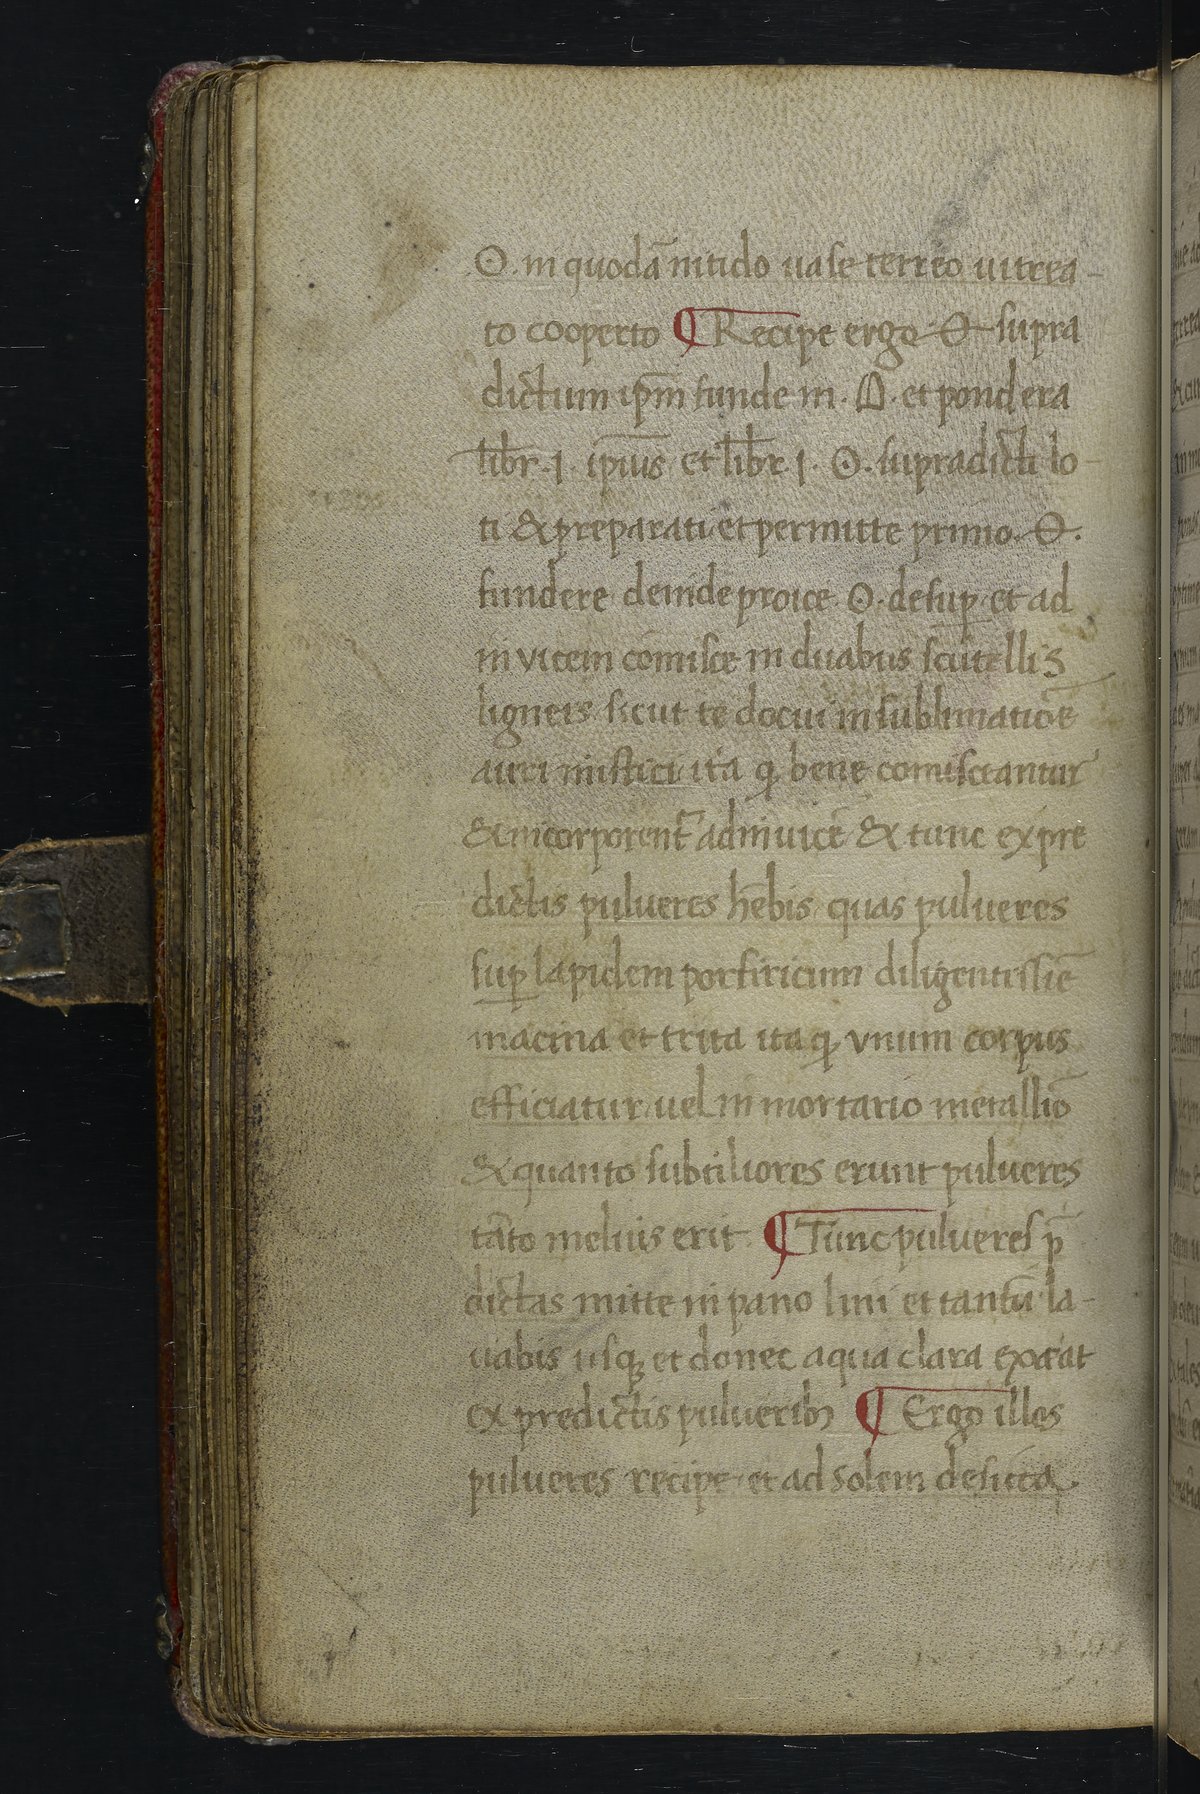 ☉. in quodā nitido uase terreo uitrea-
to cooperto ¶ Recipe ergo supra
dictum ip̄m funde in et pondera
libr̄. j. ipīus et libr̄ j. ☉. supradicti lo-
ti & preparati et permitte primo
fundere deinde proice ☉. desuꝑ et ad
in vicem cōmisce in duabus scutellis
ligneis sicut te docui in sublimatiōe
auri mistici ita ꝙ bene comisceantur
& incorporent̄ adinuicē & tunc ex pre
dictis pulueres hēbis quas pulueres
suꝑ lapidem porfiricum diligentissiē
macina et trita ita ꝙ vnum corpus
efficiatur uel in mortario metallīo
& quanto subtiliores erunt pulueres
tāto melius erit ¶ Tunc pulueres p̄
dictas mitte in pano lini et tantū la-
uabis usqꝫ et donec aqua clara exeat
ex predictis pulueribꝫ ¶ Ergo illos
pulueres recipe et ad solem desicca